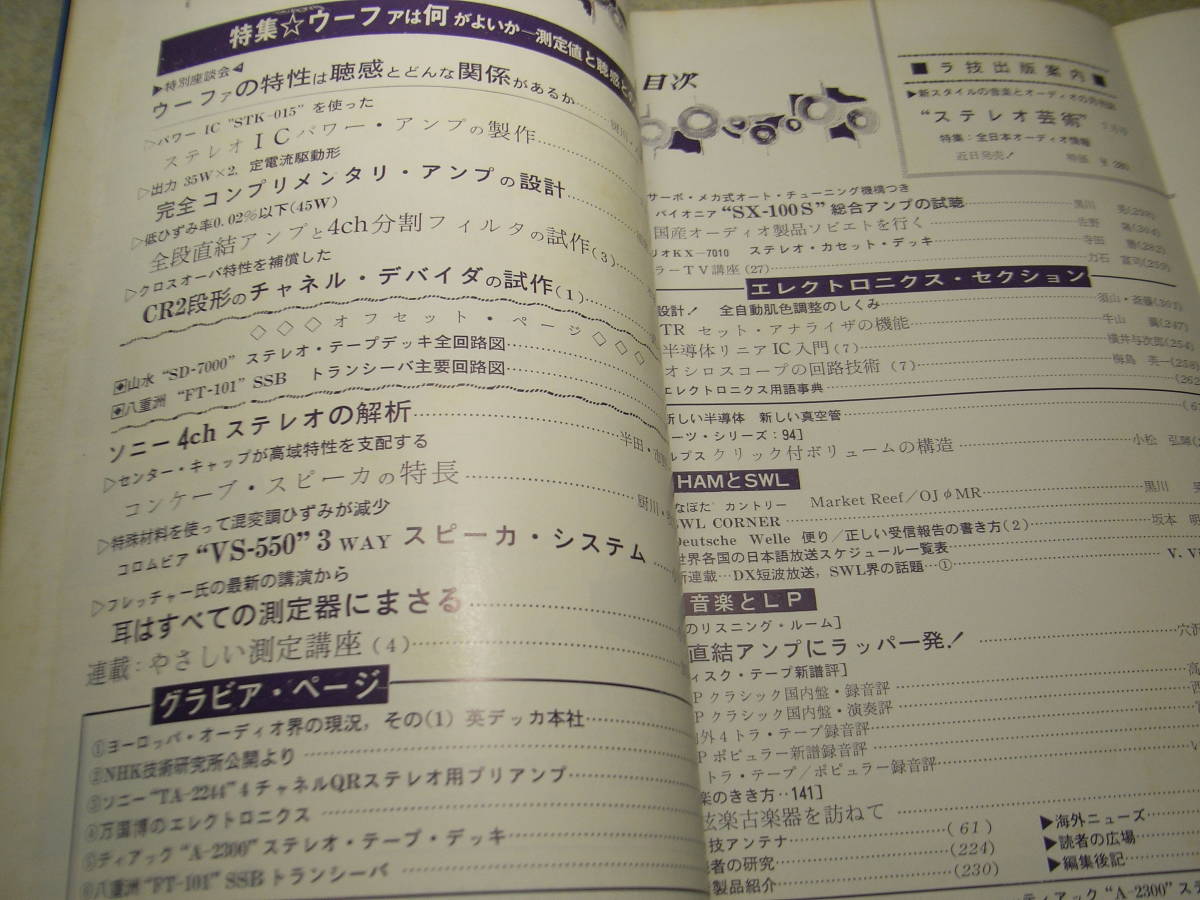 特集☆ウーファは何がよいか—測定値と聴感と
▶特別座談会◀
ウーファの特性は聴感とどんな関係があるか
▷パワー IC "STK-015" を使った
ステレオICパワー・アンプの製作
▷出力 35W×2，定電流駆動形
完全コンプリメンタリ・アンプの設計
▷低ひずみ率0.02%以下(45W)
全段直結アンプと4ch分割フィルタの試作(3)
▷クロスオーバ特性を補償した
CR2段形のチャネル・デバイダの試作(1)
◇◇◇オフセット・ページ◇◇◇
山水 "SD-7000" ステレオ・テープデッキ全回路図
八重洲 "FT-101" SSB トランシーバ主要回路図
ソニー4chステレオの解析 半田・
▷センター・キャップが高域特性を支配する
コンケーブ・スピーカの特長 厨川・
▷特殊材料を使って混変調ひずみが減少
コロムビア "VS-550" 3 WAY スピーカ・システム
▷フレッチャー氏の最新の講演から
耳はすべての測定器にまさる
連載：やさしい測定講座(4)
グラビア・ページ
①ヨーロッパ・オーディオ界の現況，その(1) 英デッカ本社
②NHK技術研究所公開より
③ソニー "TA-2244" 4チャネルQRステレオ用プリアンプ
④万国博のエレクトロニクス
⑤ティアック "A-2300" ステレオ・テープ・デッキ
⑥八重洲 "FT-101" SSBトランシーバ
目次
■ラ技出版案内■
▶新スタイルの音楽とオーディオの
"ステレオ芸術"
特集：全日本オーディオ情報
近日発売！ 特価 ¥ 280
サーボ・メカ式オート・チューニング機構つき
パイオニア "SX-100S" 総合アンプの試聴 黒川
国産オーディオ製品ソビエトを行く 佐野
リオKX-7010 ステレオ・カセット・デッキ 寺田 (282)
ラーTV講座(27) 力石 (259)
エレクトロニクス・セクション
設計！ 全自動肌色調整のしくみ 須山・斎藤
TR セット・アナライザの機能 牛山 (247)
半導体リニアIC入門(7) 横井与次郎(254)
オシロスコープの回路技術(7) 梅島 (258)
エレクトロニクス用語事典 (262
新しい半導体 新しい真空管
ーツ・シリーズ：94]
ルプスクリック付ボリュームの構造 小松
HAMとSWL
なぼた カントリー Market Reef／OJφMR 黒川
SWL CORNER
Deutsche Welle 便り／正しい受信報告の書き方(2) 坂本
世界各国の日本語放送スケジュール一覧表
新連載…DX短波放送，SWL界の話題…① V.
音楽とLP
のリスニング・ルーム]
直結アンプにラッパ一発！ 穴沢
ィスク・テープ新譜評]
Pクラシック国内盤・録音評
Pクラシック国内盤・演奏評
外4トラ・テープ録音評
Pポピュラー新譜録音評
トラ・テープ／ポピュラー録音評
楽のきき方‥141]
弦楽古楽器を訪ねて
技アンテナ (61)
者の研究 (224)
製品紹介 (230)
▶海外ニュース
▶読者の広場
▶編集後記
ティアック "A-2300" ステ